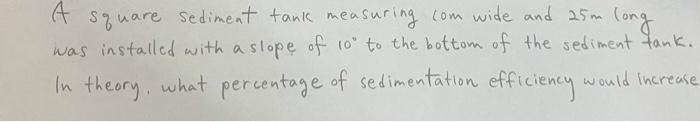 A square sediment tank measuring 10m wide and 25m long
was installed with a slope of 10° to the bottom of the sediment tank.
In theory, what percentage of sedimentation efficiency would increase